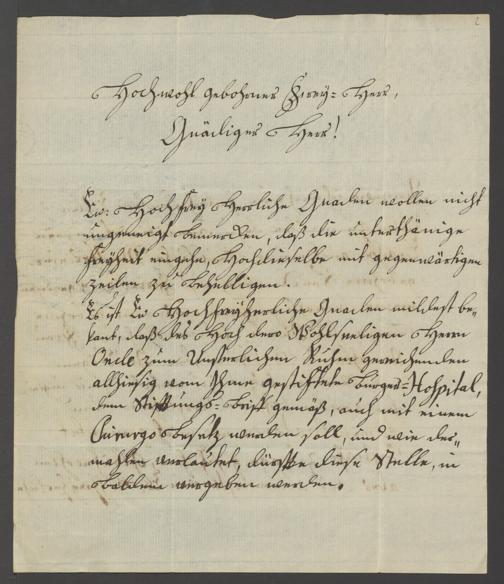 Hochwohl gebohrner Frey-Herr,
Gnädiger Herr!
Ew: Hochfrey Herrliche Gnaden wollen nicht
ungeneigt bemerken, daß die unterthänige
Freyheit eingehe, Hochdieselbe mit gegenwärtigen
Zeilen zu behelligen.
Es ist Ew Hochfreyherrliche Gnaden mildest be-
kant, daß des Hoch dero Wohlseeligen Herrn
Oncle zum Unsterblichen Ruhm gereichenden
allhiesig von Ihme gestiftete Burger-Hospital,
dem Stiftungs-brieff gemäß, auch mit einem
Chirurgo besetz werden soll, und wie der-
mahlen verlautet, dürffte diese Stelle, in
baldem vergeben werden.